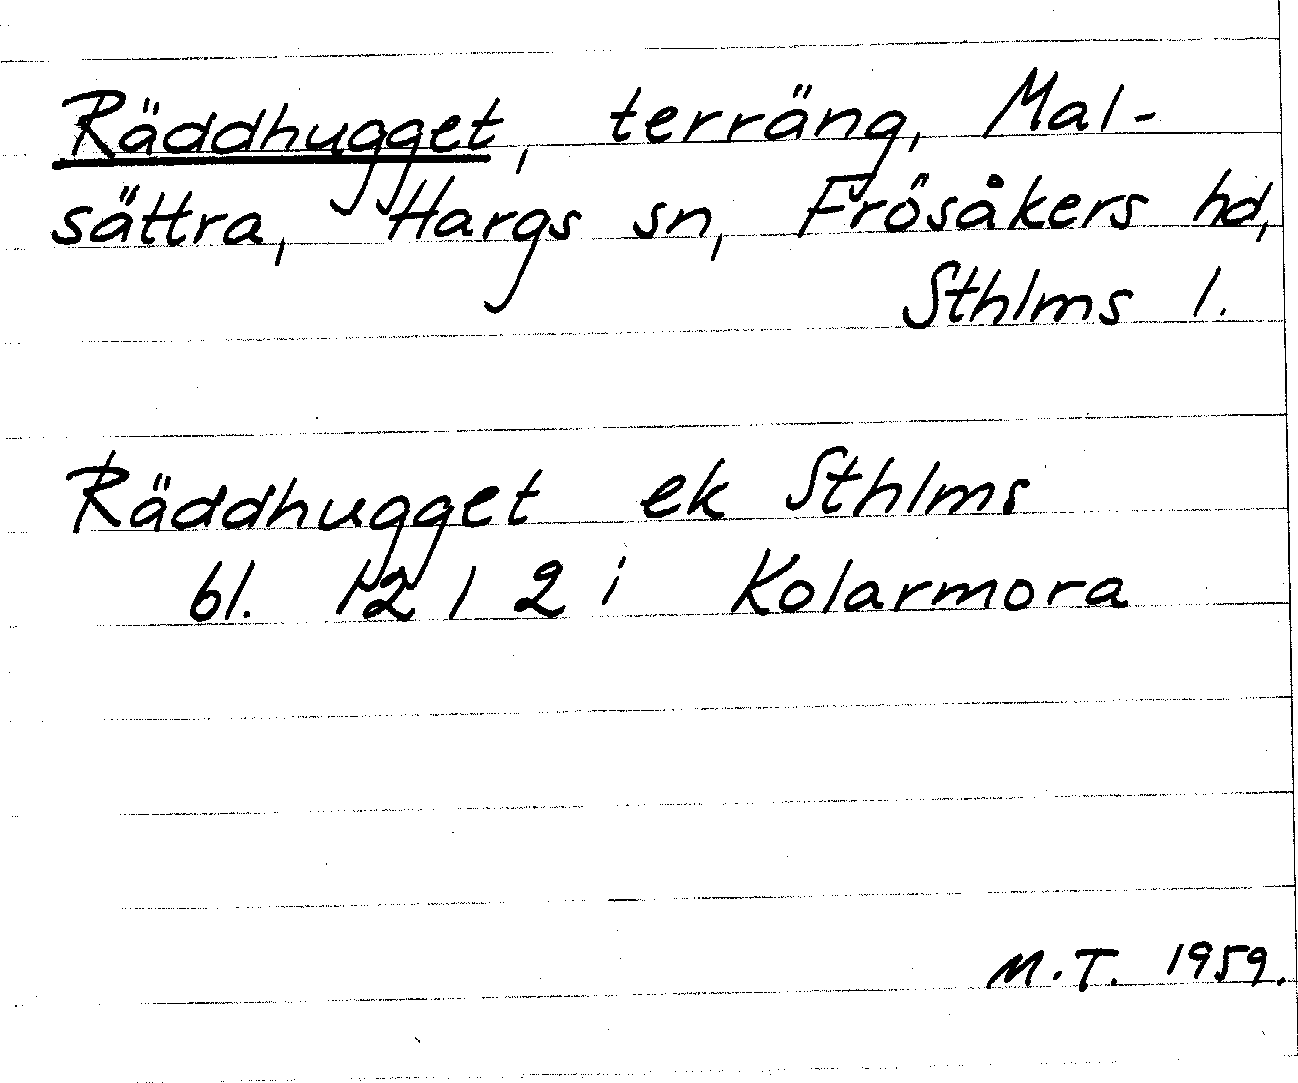 Räddhugget, terräng, Mal-
sättra, Hargs sn, Frösåkers hd,
Sthlms l.
Räddhugget ek Sthlms
bl. 12 I 2 i Kolarmora
M.T. 1959.